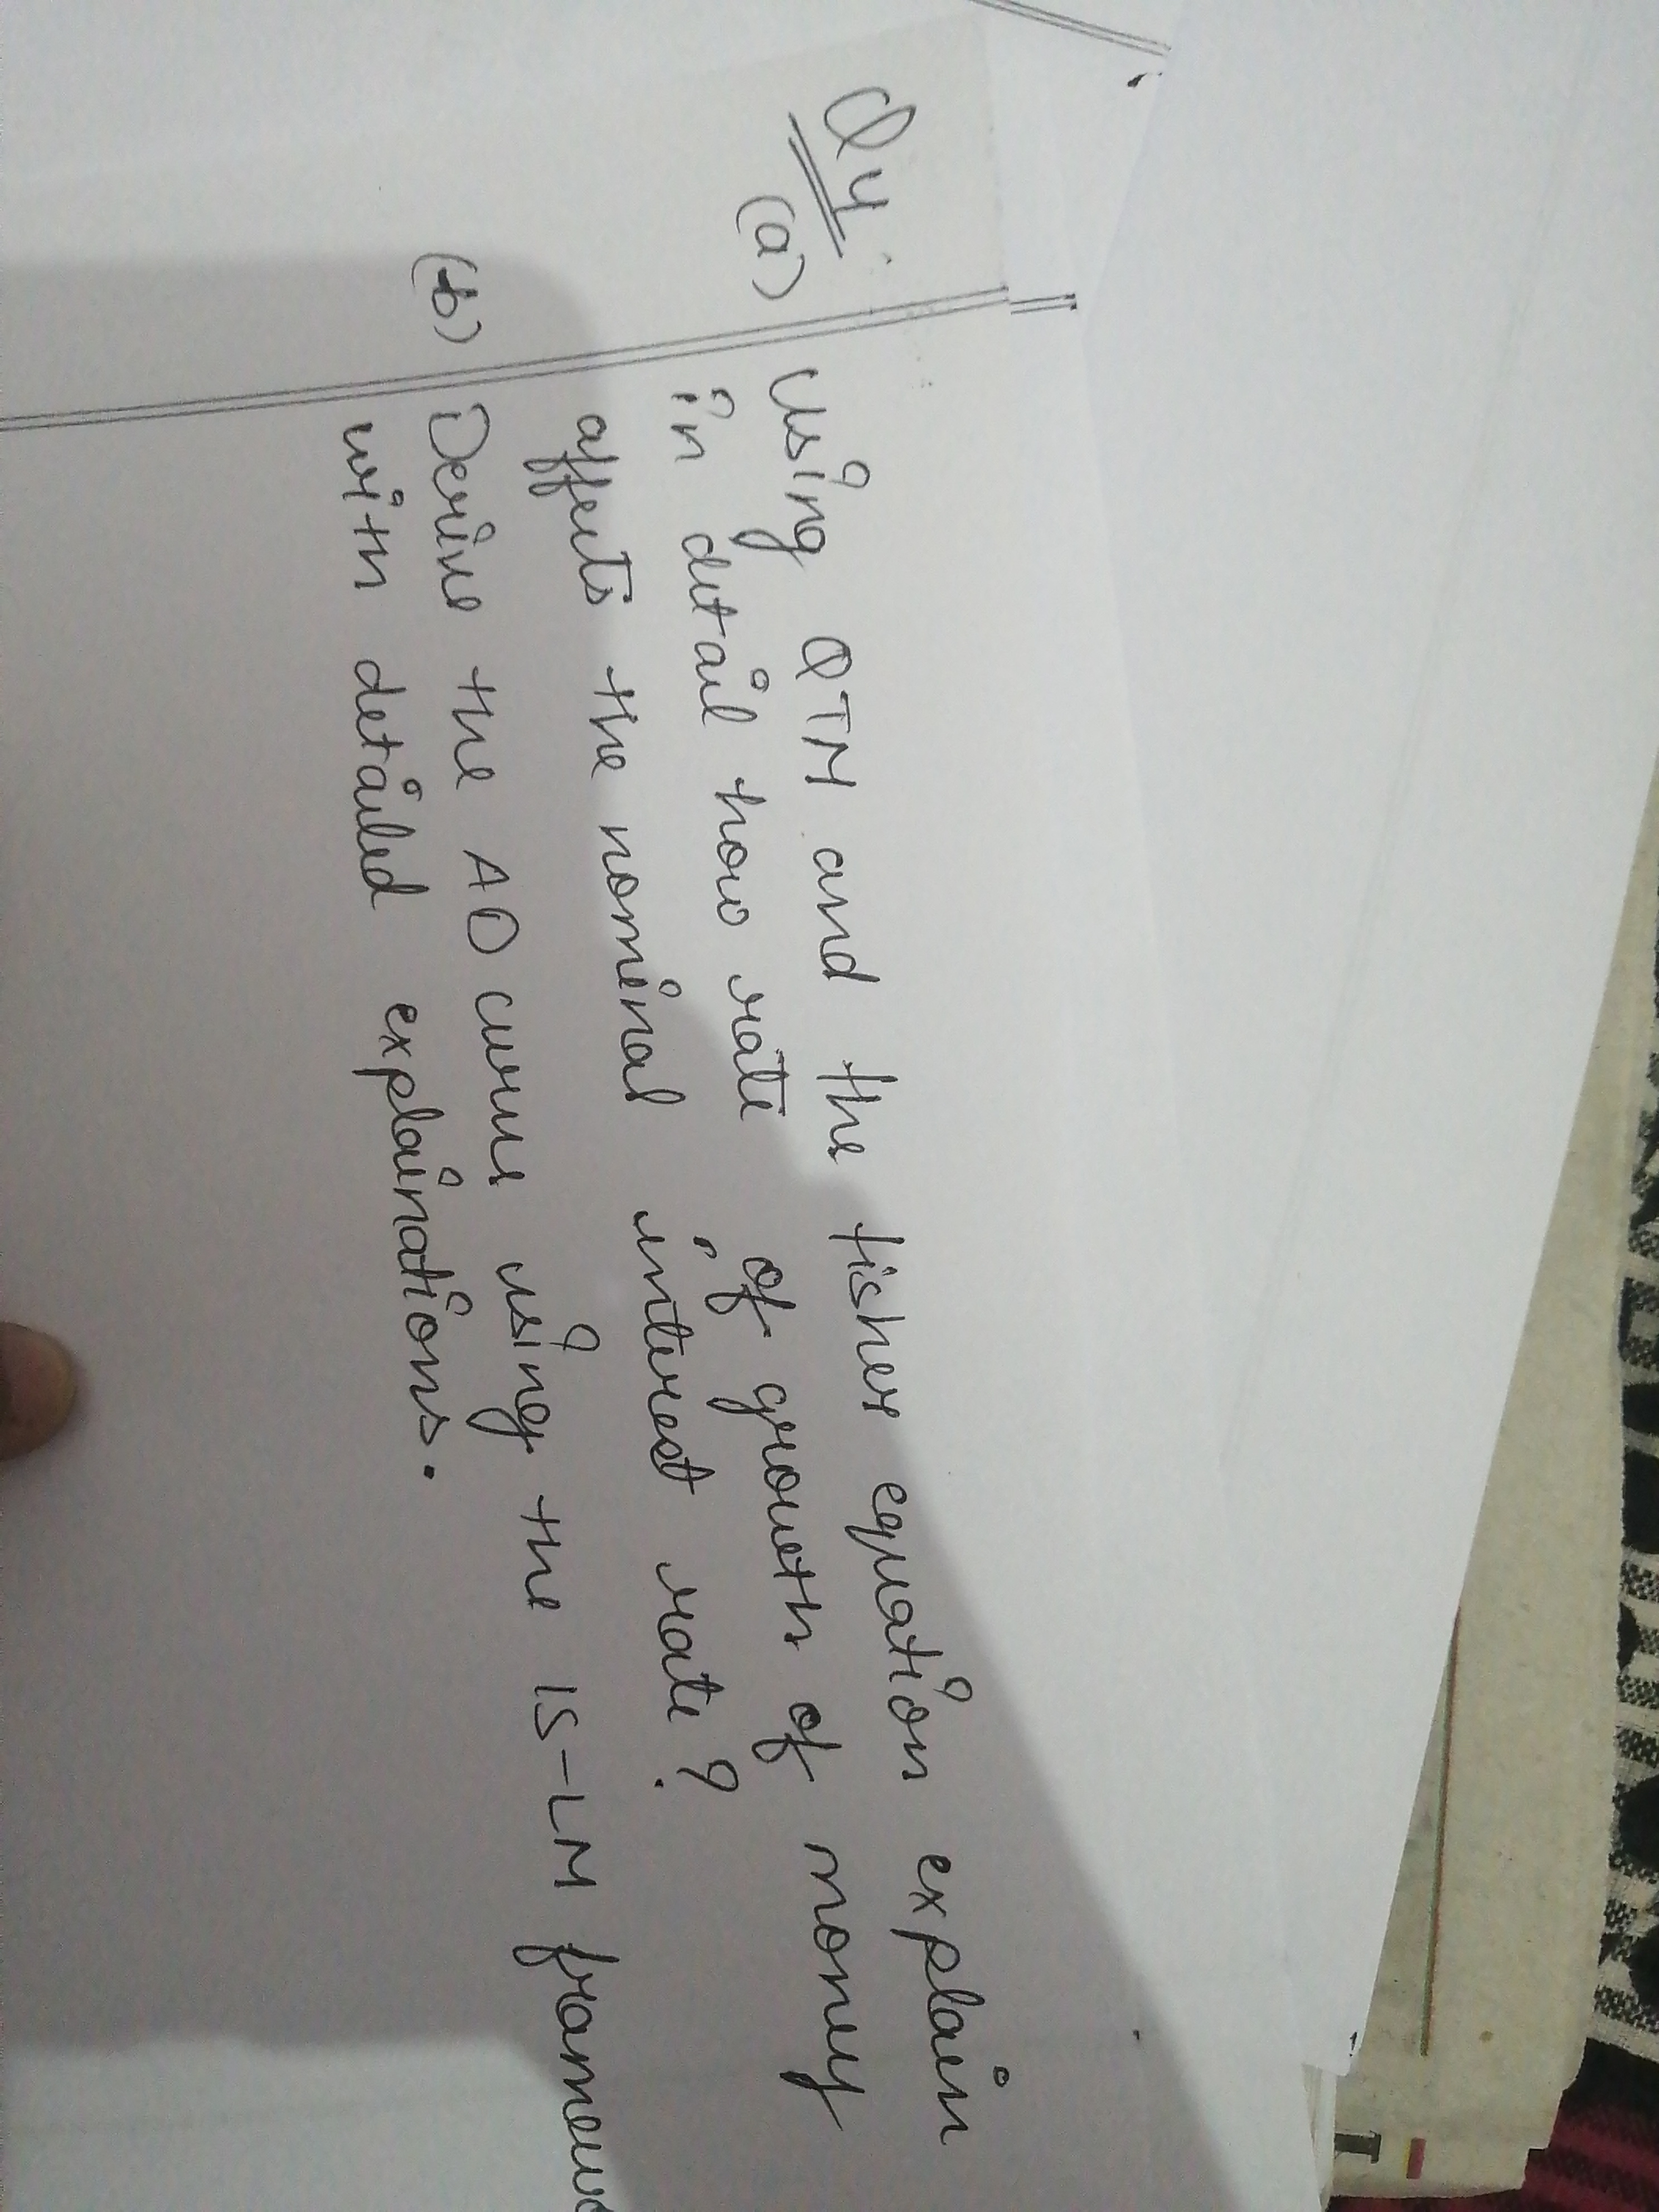 Q4.
(a) Using QTM and the fisher equation explain
in detail how rate of growth of money
affects the nominal interest rate?
(b) Derive the AD curve using the IS-LM
with detailed explainations.